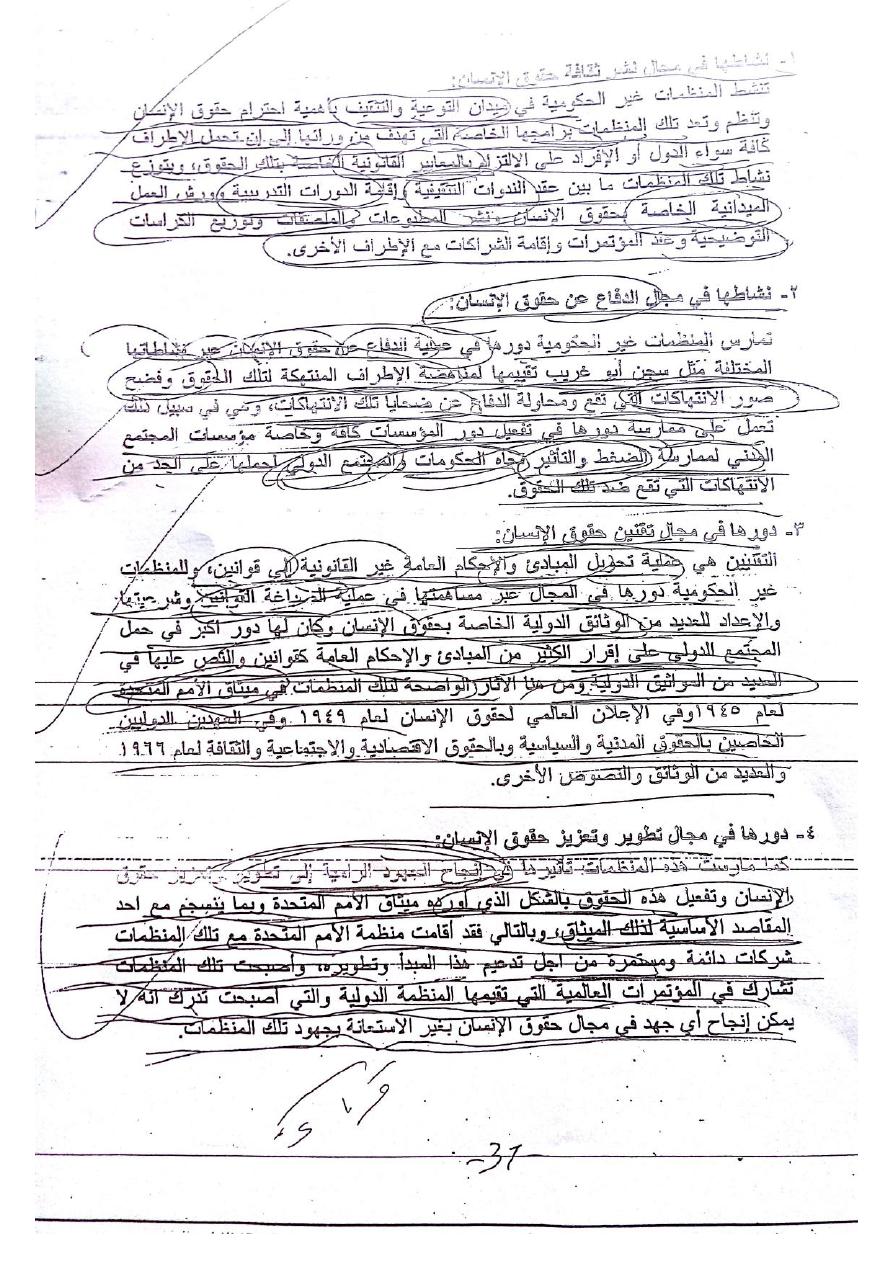 ١- نشاطها في مجال نشر ثقافة حقوق الإنسان:
تنشط المنظمات غير الحكومية في ميدان التوعية والتثقيف بأهمية احترام حقوق الإنسان
وتنظم وتعد تلك المنظمات برامجها الخاصة التي تهدف من ورائها إلى إن تحمل الإطراف
كافة سواء الدول أو الإفراد على الالتزام بالمعايير القانونية الخاصة بتلك الحقوق، ويتوزع
نشاط تلك المنظمات ما بين عقد الندوات التثقيفية وإقامة الدورات التدريبية وورش العمل
الميدانية الخاصة بحقوق الإنسان ونشر المطبوعات والملصقات وتوزيع الكراسات
التوضيحية وعقد المؤتمرات وإقامة الشراكات مع الإطراف الأخرى.
٢- نشاطها في مجال الدفاع عن حقوق الإنسان:
تمارس المنظمات غير الحكومية دورها في عملية الدفاع عن حقوق الإنسان عبر نشاطاتها
المختلفة مثل سجن أبو غريب تقييمها لمناهضة الإطراف المنتهكة لتلك الحقوق وفضح
صور الانتهاكات التي تقع ومحاولة الدفاع عن ضحايا تلك الانتهاكات، وهي في سبيل ذلك
تعمل على ممارسة دورها في تفعيل دور المؤسسات كافة وخاصة مؤسسات المجتمع
المدني لممارسة الضغط والتأثير تجاه الحكومات والمجتمع الدولي لحملها على الحد من
الانتهاكات التي تقع ضد تلك الحقوق.
٣- دورها في مجال تقنين حقوق الإنسان:
التقنيين هي عملية تحويل المبادئ والإحكام العامة غير القانونية إلى قوانين، وللمنظمات
غير الحكومية دورها في المجال عبر مساهمتها في عملية الصياغة القوانين وشرعيتها
والإعداد للعديد من الوثائق الدولية الخاصة بحقوق الإنسان وكان لها دور اكبر في حمل
المجتمع الدولي على إقرار الكثير من المبادئ والإحكام العامة كقوانين والنص عليها في
العديد من المواثيق الدولية ومن هنا الآثار الواضحة لتلك المنظمات في ميثاق الأمم المتحدة
لعام ١٩٤٥ وفي الإعلان العالمي لحقوق الإنسان لعام ١٩٤٩ وفي العهدين الدوليين
الخاصين بالحقوق المدنية والسياسية وبالحقوق الاقتصادية والاجتماعية والثقافة لعام ١٩٦٦
والعديد من الوثائق والنصوص الأخرى.
٤- دورها في مجال تطوير وتعزيز حقوق الإنسان:
كما مارست هذه المنظمات تأثيرها في إنجاح الجهود الرامية إلى تطوير وتعزيز حقوق
الإنسان وتفعيل هذه الحقوق بالشكل الذي أورده ميثاق الأمم المتحدة وبما ينسجم مع احد
المقاصد الأساسية لذلك الميثاق، وبالتالي فقد أقامت منظمة الأمم المتحدة مع تلك المنظمات
شركات دائمة ومستمرة من اجل تدعيم هذا المبدأ وتطويره، وأصبحت تلك المنظمات
تشارك في المؤتمرات العالمية التي تقيمها المنظمة الدولية والتي أصبحت تدرك انه لا
يمكن إنجاح أي جهد في مجال حقوق الإنسان بغير الاستعانة بجهود تلك المنظمات.
-31-